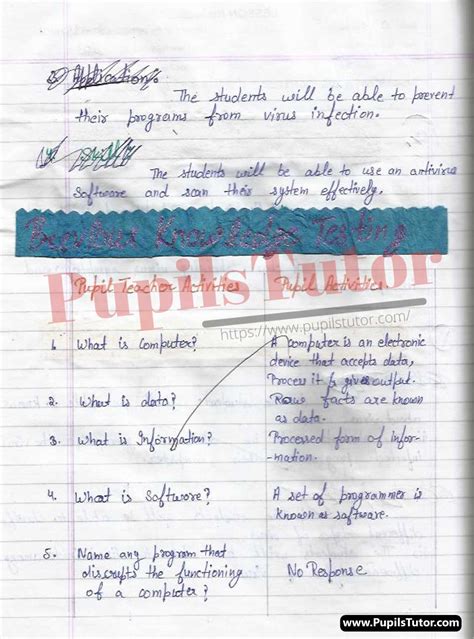 3) Application:
The students will be able to prevent
their programs from virus infection.
The students will be able to use an antivirus
Software and scan their system effectively.
Previous Knowledge Testing
PupilsTutor
Pupil Teacher Activities Pupil Activities
https://www.pupilstutor.com/
1. What is Computer? A Computer is an electronic
device that accepts data,
Process it & gives output.
2. What is data? Raw facts are known
as data.
3. What is Information? Processed form of infor-
-mation.
4. What is Software? A set of programmer is
known as software.
5. Name any program that
discrupts the functioning No Response.
of a computer?
www.PupilsTutor.com